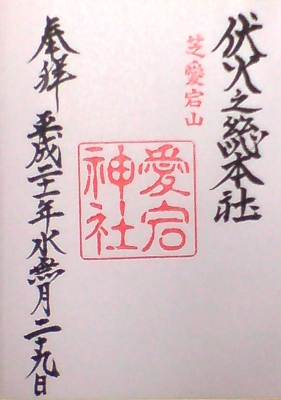 伏火之総本社
芝愛宕山
愛宕
神社
奉拝
平成二十一年水無月二十九日